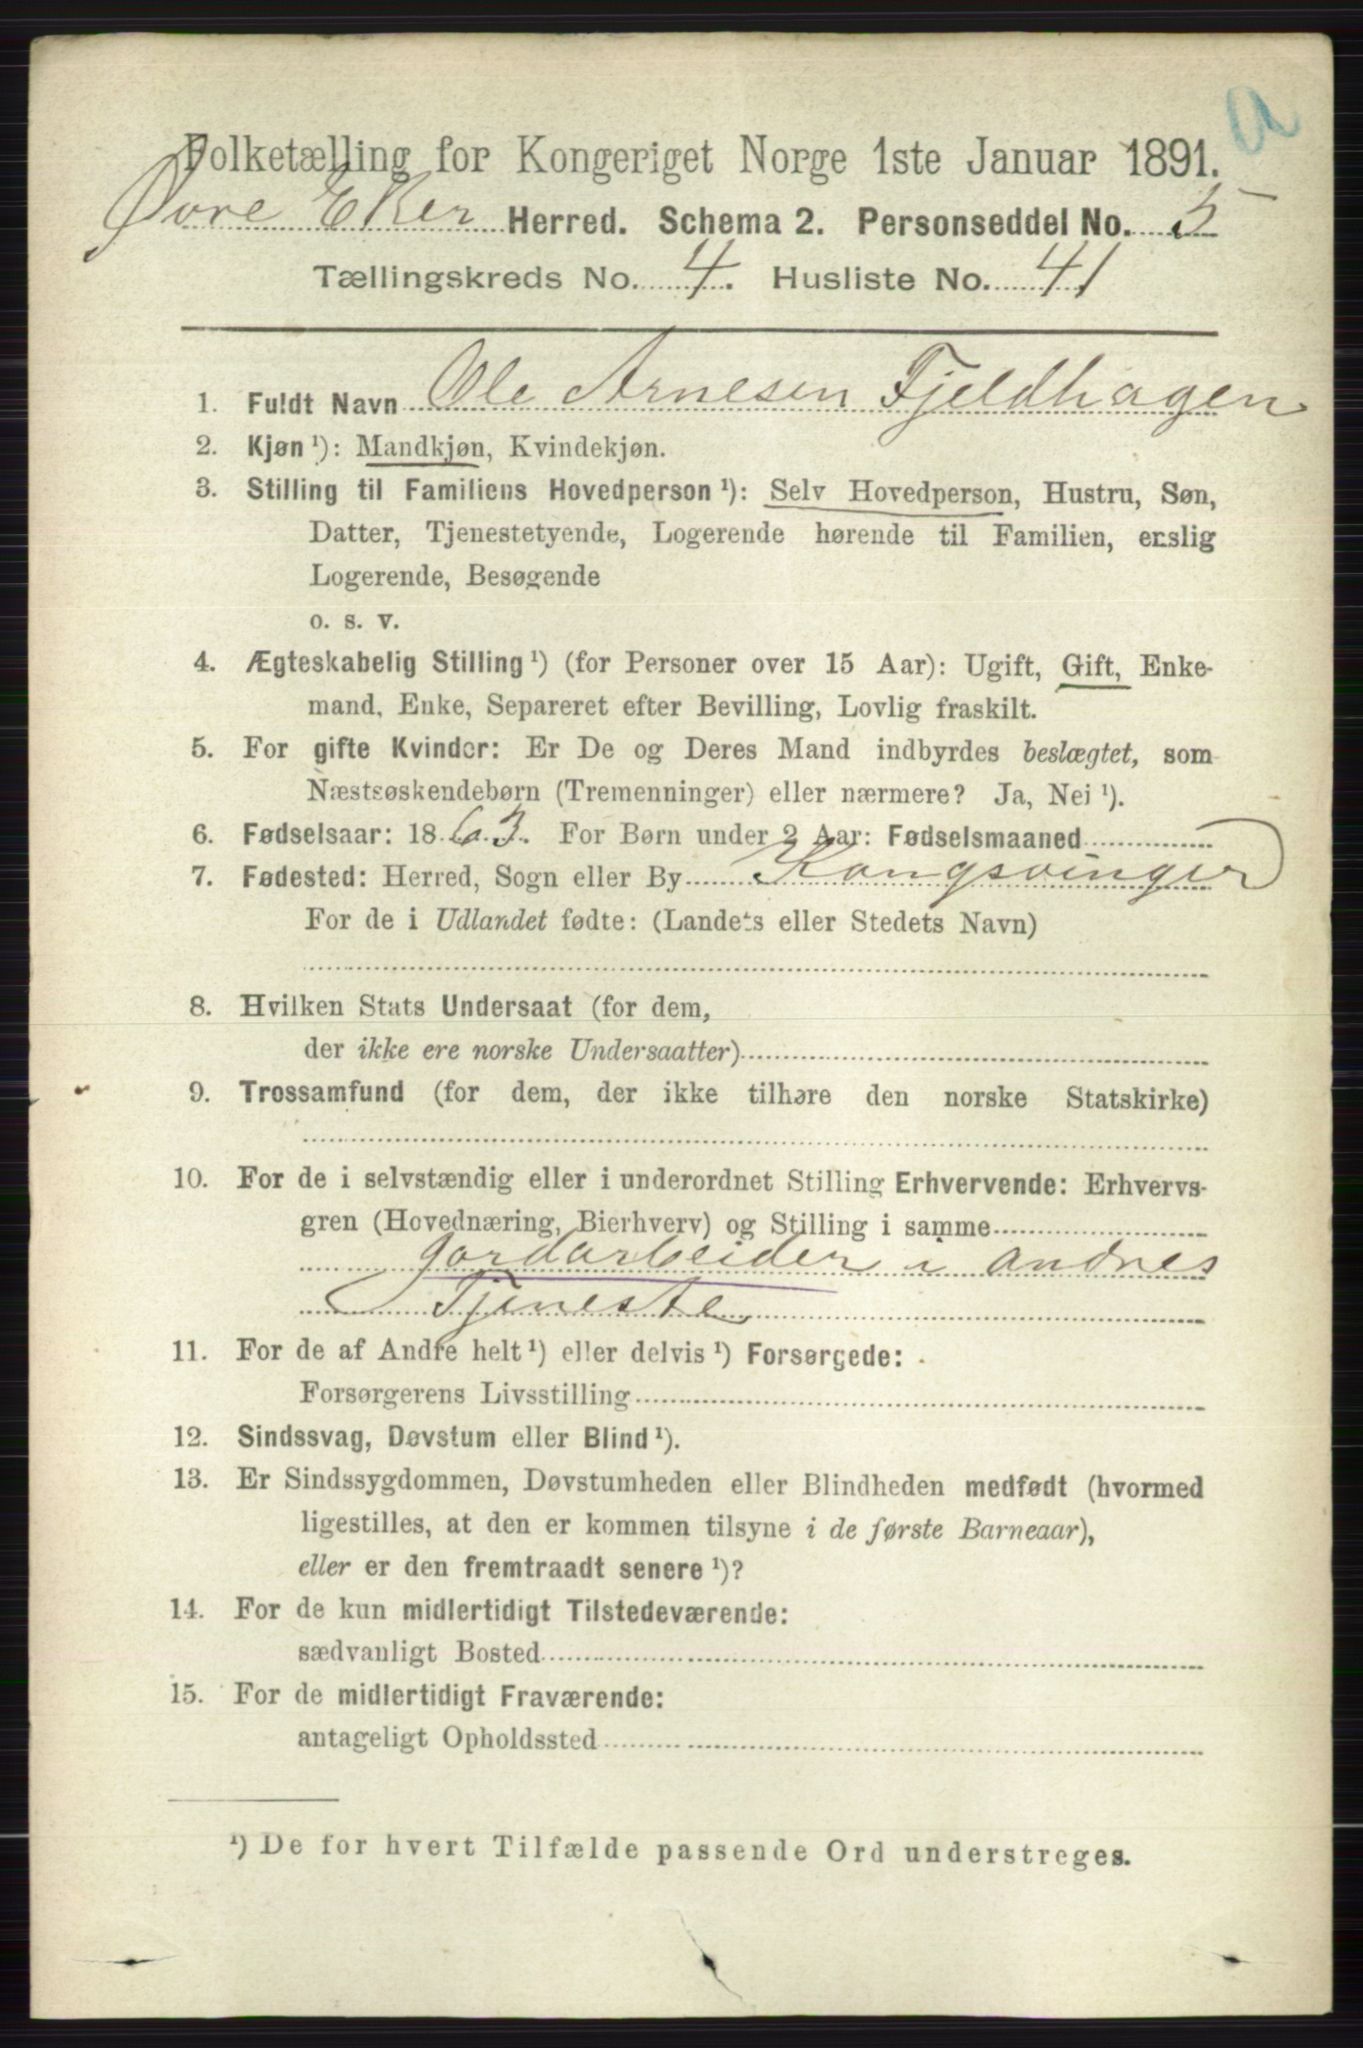 a
Folketælling for Kongeriget Norge 1ste Januar 1891.
Øvre Eker Herred. Schema 2. Personseddel No. 5
Tællingskreds No. 4. Husliste No. 41
1. Fuldt Navn Ole Arnesen Fjeldhagen
2. Kjøn ¹): Mandkjøn, Kvindekjøn.
3. Stilling til Familiens Hovedperson ¹): Selv Hovedperson, Hustru, Søn,
Datter, Tjenestetyende, Logerende hørende til Familien, enslig
Logerende, Besøgende
o. s. v.
4. Ægteskabelig Stilling ¹) (for Personer over 15 Aar): Ugift, Gift, Enke-
mand, Enke, Separeret efter Bevilling, Lovlig fraskilt.
5. For gifte Kvinder: Er De og Deres Mand indbyrdes beslægtet, som
Næstsøskendebørn (Tremenninger) eller nærmere? Ja, Nei ¹).
6. Fødselsaar: 1863. For Børn under 2 Aar: Fødselsmaaned
7. Fødested: Herred, Sogn eller By Kongsvinger
For de i Udlandet fødte: (Landets eller Stedets Navn)
8. Hvilken Stats Undersaat (for dem,
der ikke ere norske Undersaatter)
9. Trossamfund (for dem, der ikke tilhøre den norske Statskirke)
10. For de i selvstændig eller i underordnet Stilling Erhvervende: Erhvervs-
gren (Hovednæring, Bierhverv) og Stilling i samme
Gordarbeider i andres
Tjeneste
11. For de af Andre helt ¹) eller delvis ¹) Forsørgede:
Forsørgerens Livsstilling
12. Sindssvag, Døvstum eller Blind ¹).
13. Er Sindssygdommen, Døvstumheden eller Blindheden medfødt (hvormed
ligestilles, at den er kommen tilsyne i de første Barneaar),
eller er den fremtraadt senere ¹)?
14. For de kun midlertidigt Tilstedeværende:
sædvanligt Bosted
15. For de midlertidigt Fraværende:
antageligt Opholdssted
¹) De for hvert Tilfælde passende Ord understreges.